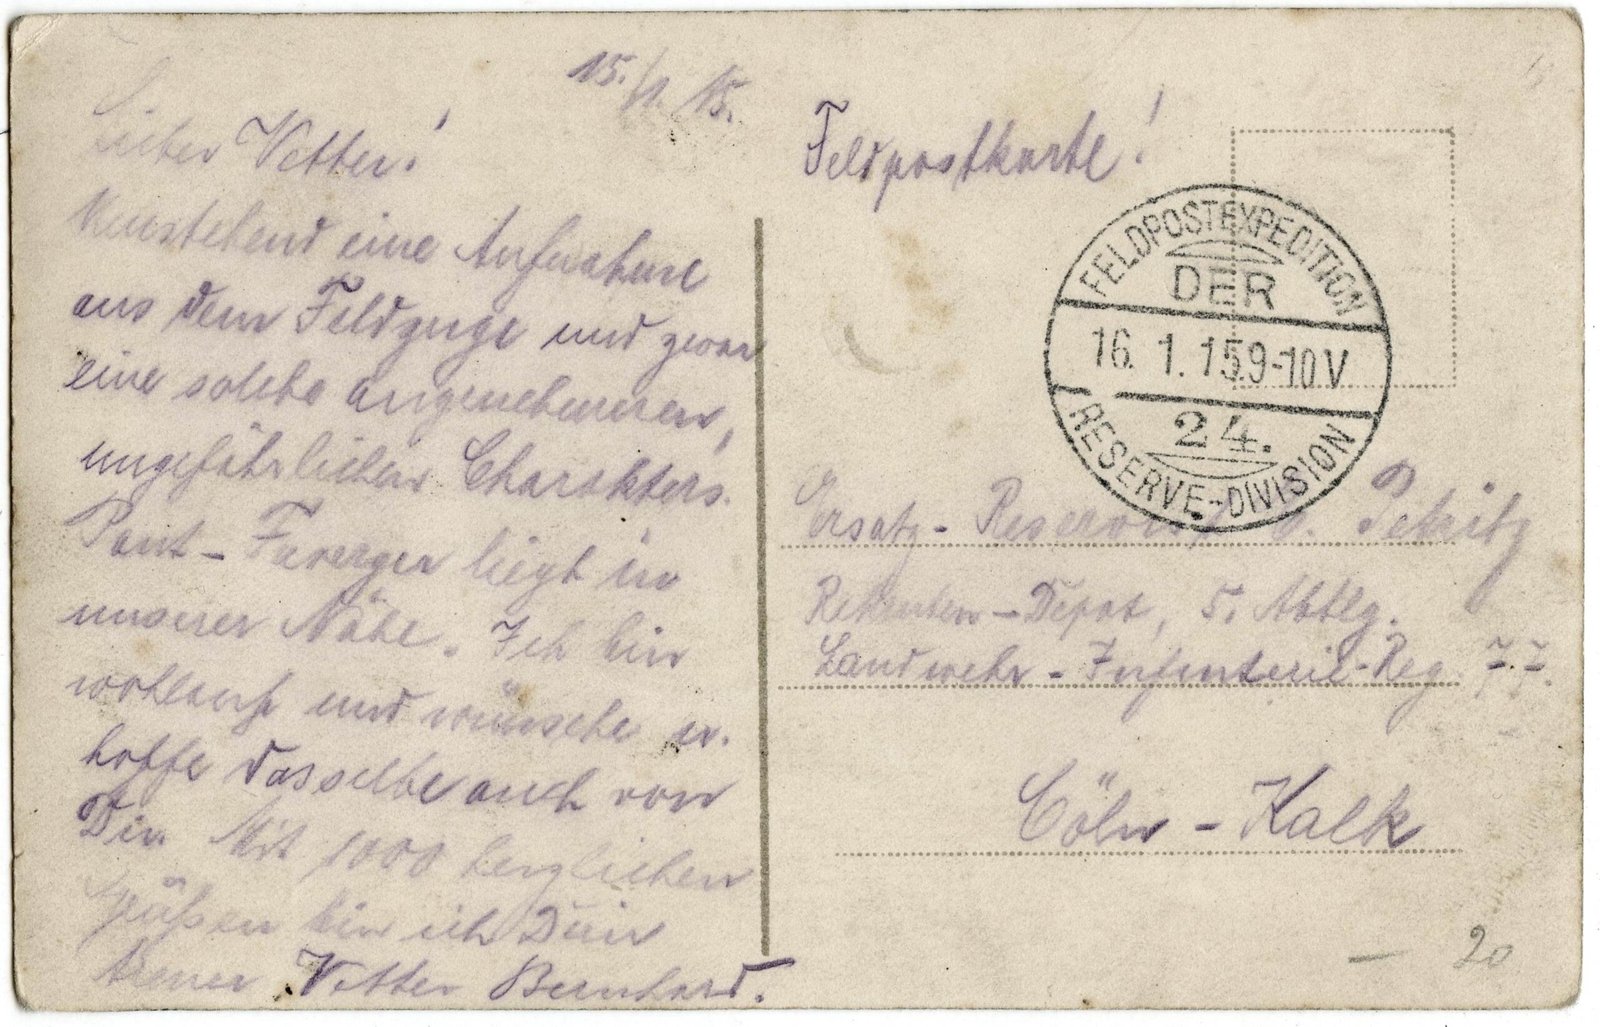 15./1. 15.
Lieber Vetter!
Umstehend eine Aufnahme
aus dem Feldzuge und zwar
eine solche angenehmeren,
ungefährlichen Charakters.
Pont-Faverger liegt in
unserer Nähe. Ich bin
wohlauf und wünsche u.
hoffe dasselbe auch von
Dir. Mit 1000 herzlichen
Grüßen bin ich Dein
treuer Vetter Bernhard.
Feldpostkarte!
FELDPOSTEXPEDITION
DER
16. 1. 15.9-10V
24.
RESERVE-DIVISION
Ersatz-Reservist
Rekruten-Depot, 5. Abtlg.
Landwehr-Infanterie-Reg. 77.
Cöln-Kalk
- 20